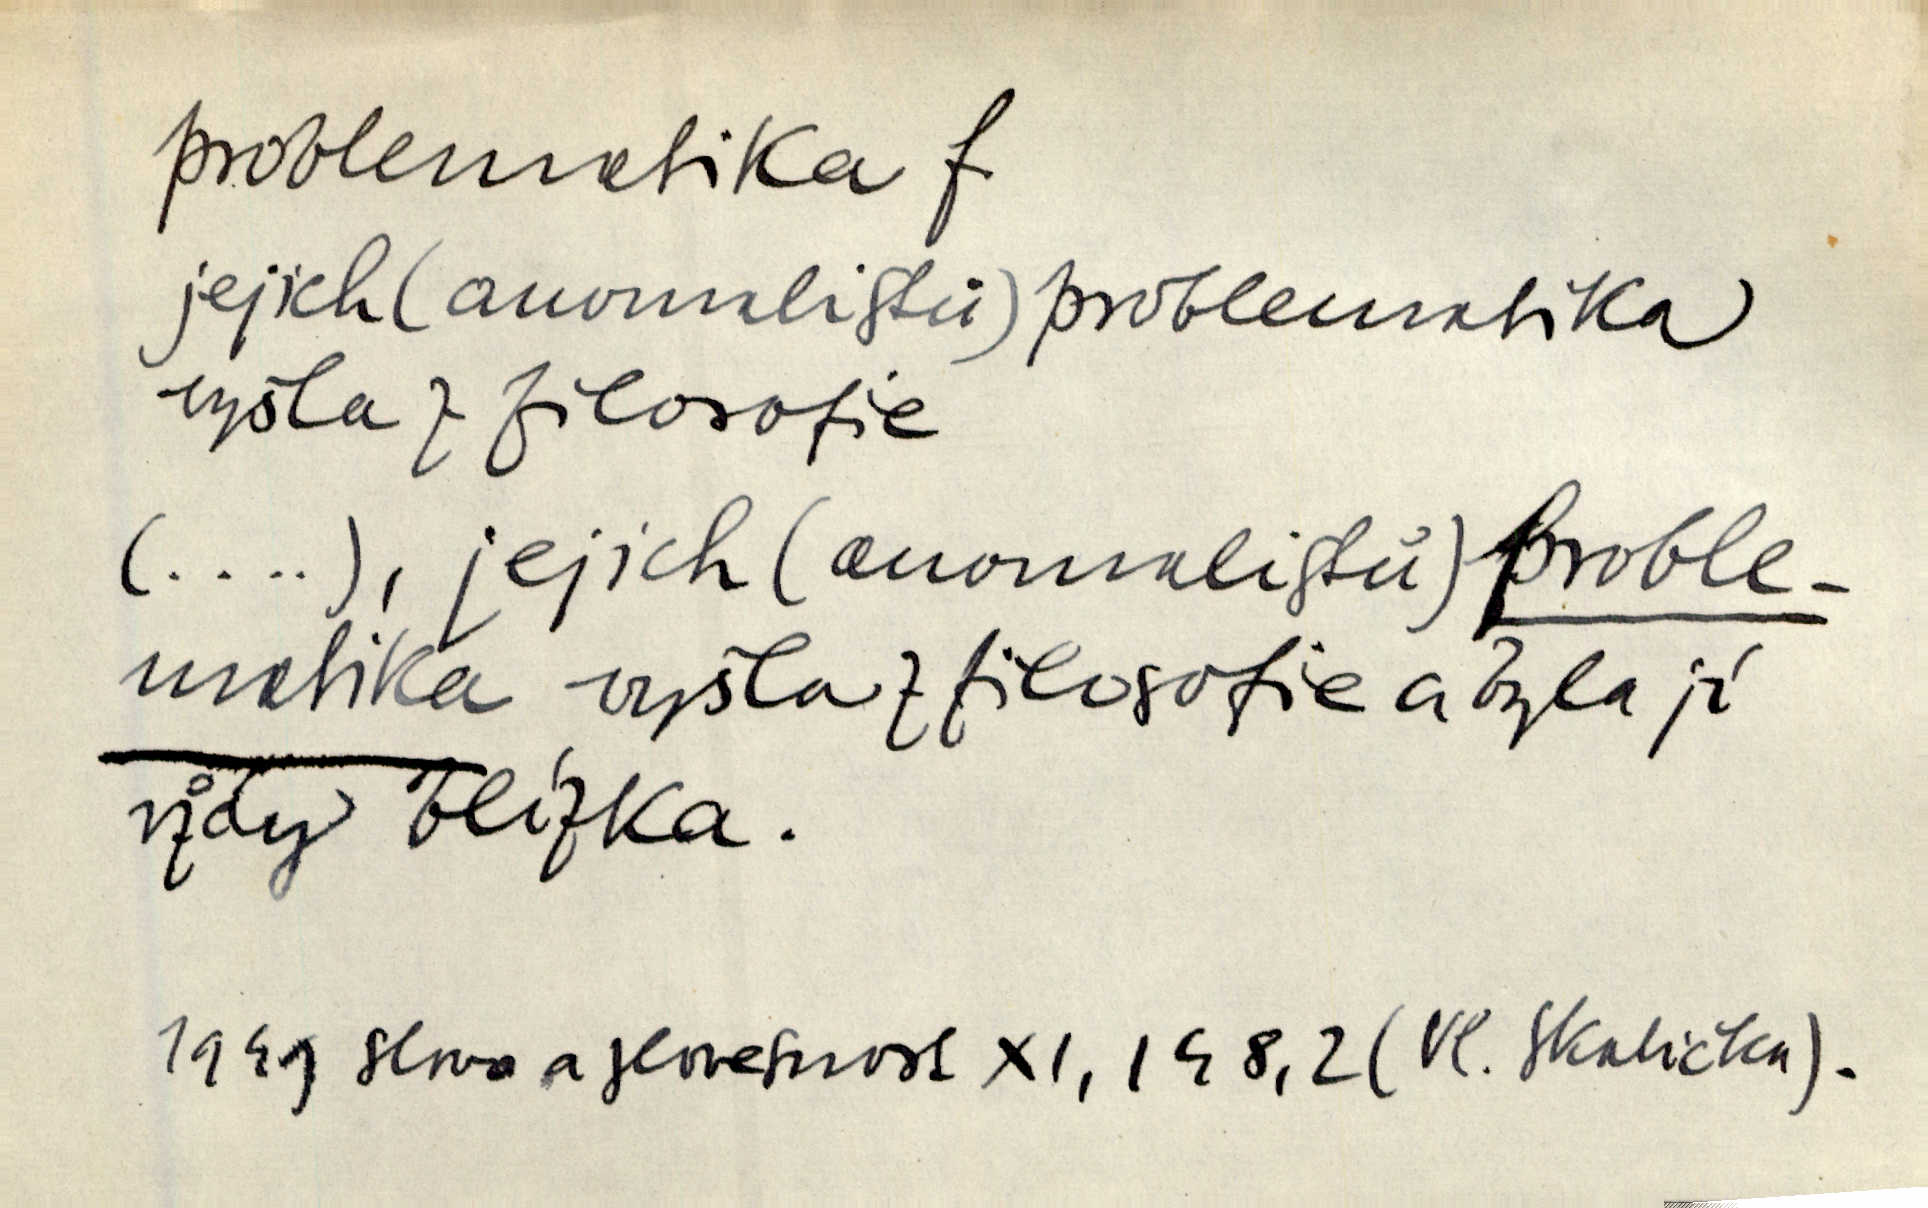 problematika f
jejich (anomalistů) problematika
vyšla z filosofie
(.....), jejich (anomalistů) proble-
matika vyšla z filosofie a byla jí
vždy blízka.
1949 slovo a slovesnost XI, 148, 2 (Vl. Skalička).